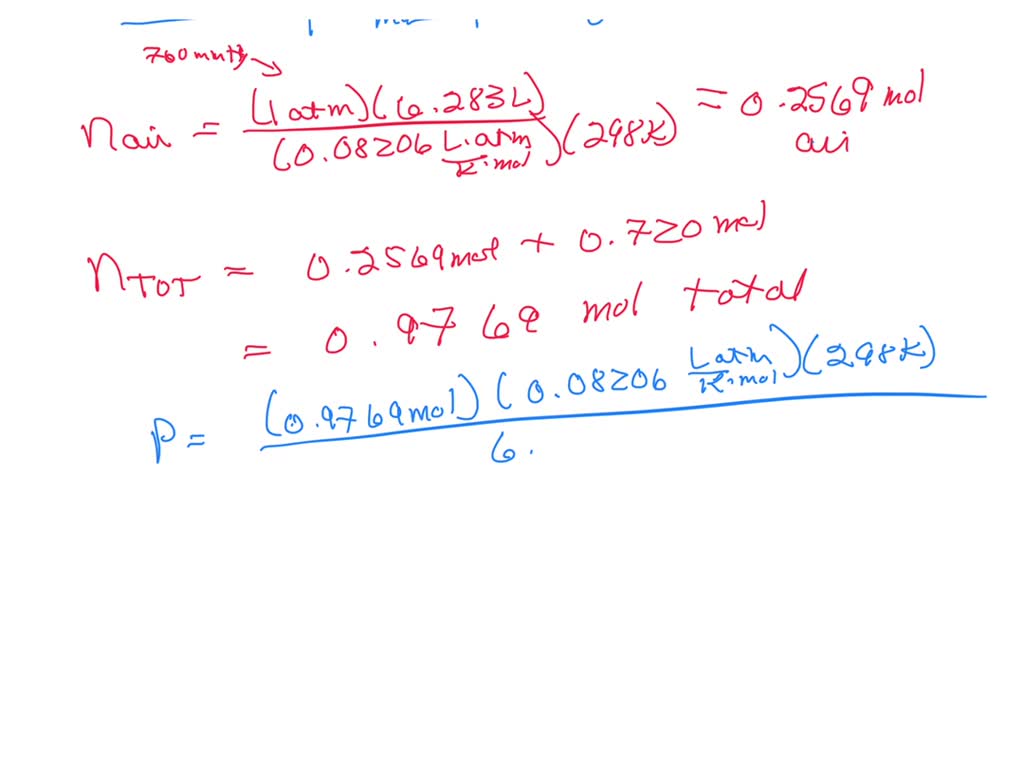 760 mmHg
n air = (1 atm)(6.283 L) / (0.08206 L·atm / K·mol)(298K) = 0.2569 mol air
n TOT = 0.2569 mol + 0.720 mol
= 0.9769 mol total
P = (0.9769 mol) (0.08206 L atm / K·mol)(298K) / 6.